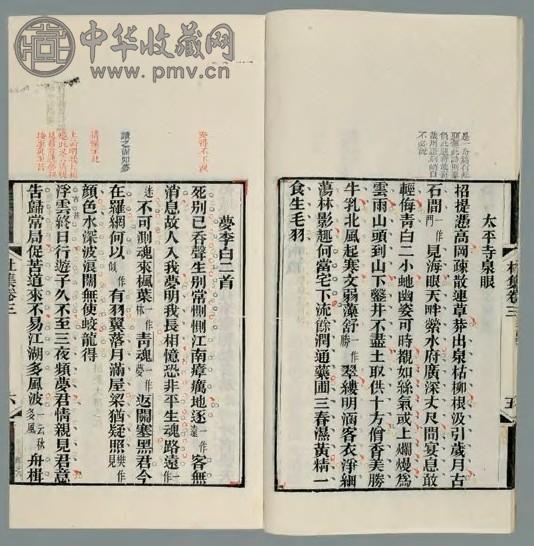 中华收藏网
www.pmv.cn
太平寺泉眼
招提憑高岡疎散連草莽出泉枯柳根汲引歲月古
石間一作門見海眼天畔縈水府廣深丈尺間宴息敢
輕侮青白二小蛇幽姿可時覩如絲氣或上爛熳爲
雲雨山頭到山下鑿井不盡土取供十方僧香美勝
牛乳北風起寒文弱藻舒一作勝翠縷明涵客衣淨細
蕩林影趣何當宅下流餘潤通藥圃三春濕黃精一
食生毛羽
杜集卷三
五
夢李白二首
死別已吞聲生別常惻惻江南瘴癘地逐一作遠客無
消息故人入我夢明我長相憶恐非平生魂路遠一作
迷不可測魂來楓葉一作林青魂一作返關塞黑君今
在羅網何以一作似有羽翼落月滿屋梁猶疑照樊作見
顏色水深波浪闊無使蛟龍得
浮雲終日行遊子久不至三夜頻夢君情親見君意
告歸常局促苦道來不易江湖多風波一云秋多風舟楫
杜集卷三
六
讀之宛如夢